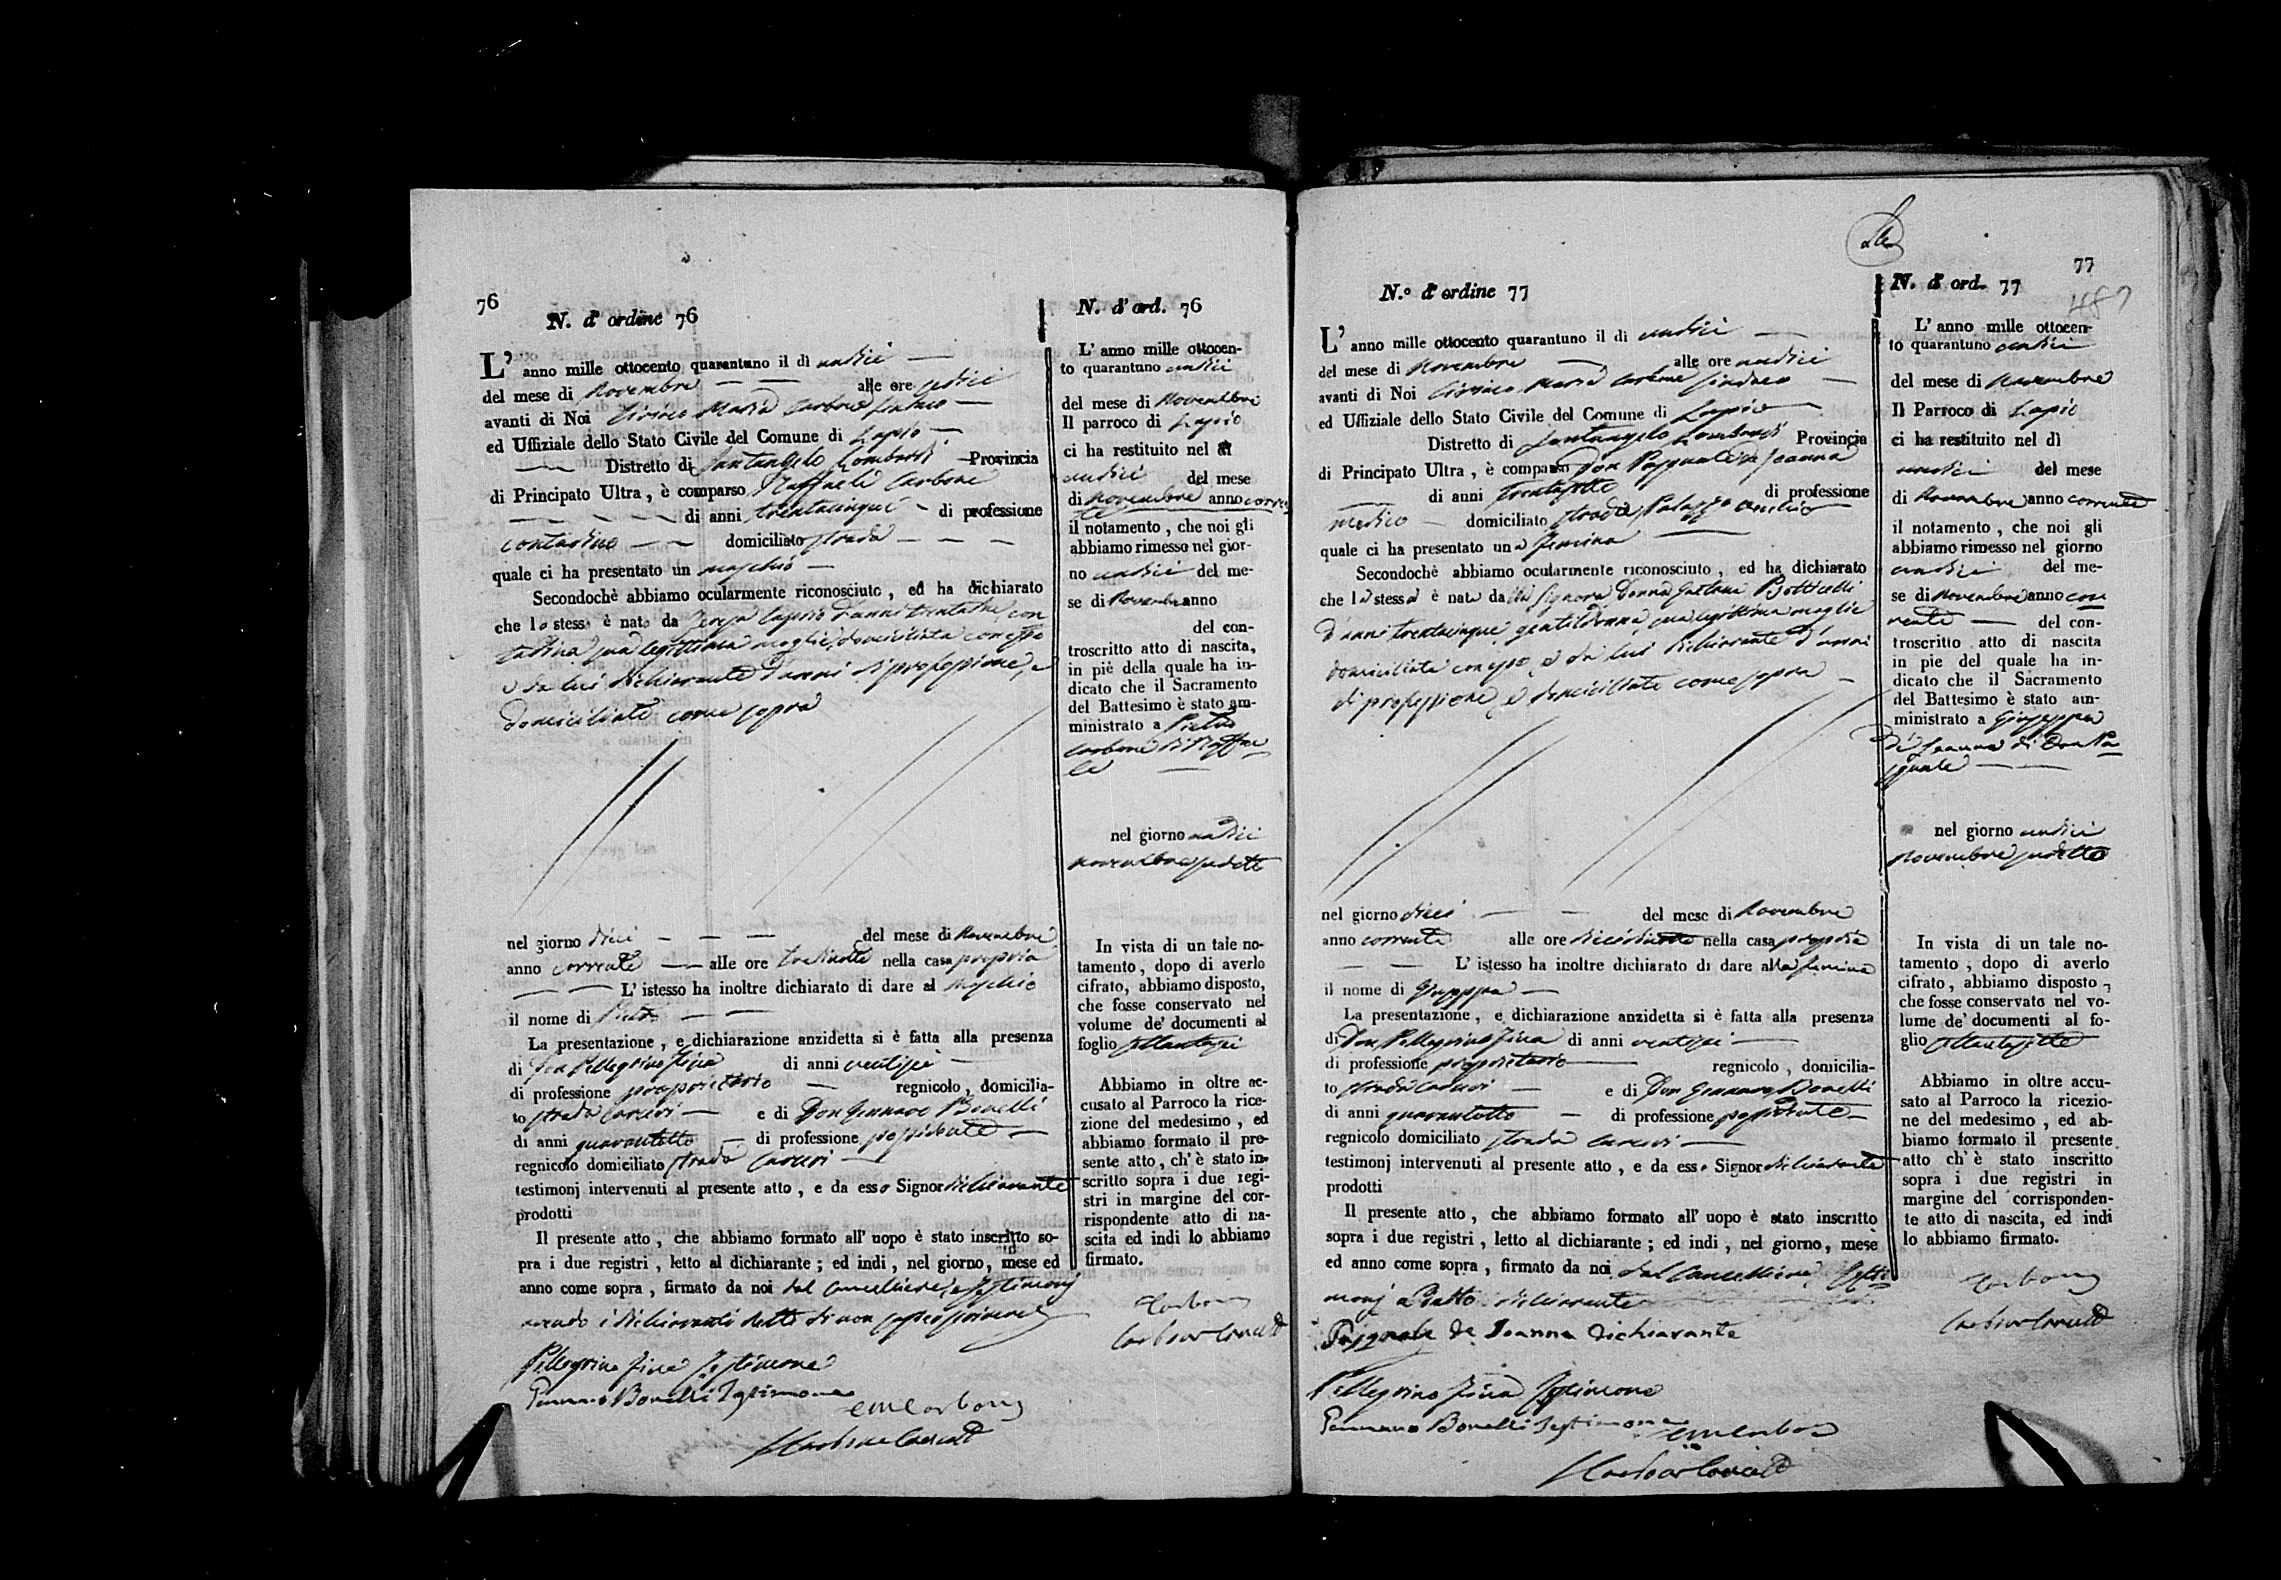 76
N. d' ordine 76
L' anno mille ottocento quarantuno il dì undici
del mese di Novembre alle ore sedici
avanti di Noi Ciriaco Maria Carbone Sindaco
ed Uffiziale dello Stato Civile del Comune di Lapio
Distretto di Santangelo Lombardi Provincia
di Principato Ultra, è comparso Raffaele Carbone
di anni trentacinque di professione
contadino domiciliato strada
quale ci ha presentato un maschio
Secondochè abbiamo ocularmente riconosciuto, ed ha dichiarato
che lo stesso è nato da Teresa Caputo d'anni trentatre, con
tadina sua legittima moglie, domiciliata con esso
e da lui dichiarante d'anni di professione, e
domiciliato come sopra
nel giorno dieci del mese di Novembre
anno corrente alle ore tredici nella casa propria
L' istesso ha inoltre dichiarato di dare al maschio
il nome di Pietro
La presentazione, e dichiarazione anzidetta si è fatta alla presenza
di Don Pellegrino Zina di anni ventisei
di professione proprietario regnicolo, domicilia-
to strada Carceri e di Don Gennaro Bonelli
di anni quarantotto di professione possidente
regnicolo domiciliato strada Carceri
testimonj intervenuti al presente atto, e da esso Signor dichiarante
prodotti
Il presente atto, che abbiamo formato all' uopo è stato inscritto so-
pra i due registri, letto al dichiarante; ed indi, nel giorno, mese ed
anno come sopra, firmato da noi dal Cancelliere, e testimonj
avendo i dichiaranti detto di non sapere scrivere
Pellegrino Zina Testimone
Gennaro Bonelli Testimone
CMCarbone
N. d' ord. 76
L' anno mille ottocen-
to quarantuno undici
del mese di Novembre
Il parroco di Lapio
ci ha restituito nel dì
undici del mese
di Novembre anno corren
te
il notamento, che noi gli
abbiamo rimesso nel gior-
no undici del me-
se di Novembre anno
del con-
troscritto atto di nascita,
in piè della quale ha in-
dicato che il Sacramento
del Battesimo è stato am-
ministrato a Pietro
Carbone di Raffae
le
nel giorno undici
novembre sudetto
In vista di un tale no-
tamento, dopo di averlo
cifrato, abbiamo disposto,
che fosse conservato nel
volume de' documenti al
foglio settantasei
Abbiamo in oltre ac-
cusato al Parroco la rice-
zione del medesimo, ed
abbiamo formato il pre-
sente atto, ch' è stato in-
scritto sopra i due regi-
stri in margine del cor-
rispondente atto di na-
scita ed indi lo abbiamo
firmato.
Carbone
77
487
N.° d' ordine 77
L' anno mille ottocento quarantuno il dì undici
del mese di Novembre alle ore undici
avanti di Noi Ciriaco Maria Carbone Sindaco
ed Uffiziale dello Stato Civile del Comune di Lapio
Distretto di Santangelo Lombardi Provincia
di Principato Ultra, è comparso Don Pasquale de Joanna
di anni trentasette di professione
medico domiciliato strada Palazzo
quale ci ha presentato una femina
Secondochè abbiamo ocularmente riconosciuto, ed ha dichiarato
che la stessa è nata dalla Signora Donna Gaetana Botticelli
d'anni trentacinque gentildonna sua legittima moglie
domiciliata con esso, e da lui dichiarante d'anni
di professione, e domiciliato come sopra
nel giorno dieci del mese di Novembre
anno corrente alle ore diciannove nella casa propria
L' istesso ha inoltre dichiarato di dare alla femina
il nome di Giuseppa
La presentazione, e dichiarazione anzidetta si è fatta alla presenza
di Don Pellegrino Zina di anni ventisei
di professione proprietario regnicolo, domicilia-
to strada Carceri e di Don Gennaro Bonelli
di anni quarantotto di professione possidente
regnicolo domiciliato strada Carceri
testimonj intervenuti al presente atto, e da esso Signor dichiarante
prodotti
Il presente atto, che abbiamo formato all' uopo è stato inscritto
sopra i due registri, letto al dichiarante; ed indi, nel giorno, mese
ed anno come sopra, firmato da noi dal Cancelliere, testi
monj e detto dichiarante
Pasquale de Joanna dichiarante
Pellegrino Zina Testimone
Gennaro Bonelli Testimone
CMCarbone
N. d' ord. 77
L' anno mille ottocen-
to quarantuno undici
del mese di Novembre
Il Parroco di Lapio
ci ha restituito nel dì
undici del mese
di Novembre anno corrente
il notamento, che noi gli
abbiamo rimesso nel giorno
undici del me-
se di Novembre anno cor
rente del con-
troscritto atto di nascita
in pie del quale ha in-
dicato che il Sacramento
del Battesimo è stato am-
ministrato a Giuseppa
di Joanna di Don Pa
squale
nel giorno undici
Novembre sudetto
In vista di un tale no-
tamento, dopo di averlo
cifrato, abbiamo disposto,
che fosse conservato nel vo-
lume de' documenti al fo-
glio settantasette
Abbiamo in oltre accu-
sato al Parroco la ricezio-
ne del medesimo, ed ab-
biamo formato il presente
atto ch' è stato inscritto
sopra i due registri in
margine del corrisponden-
te atto di nascita, ed indi
lo abbiamo firmato.
Carbone